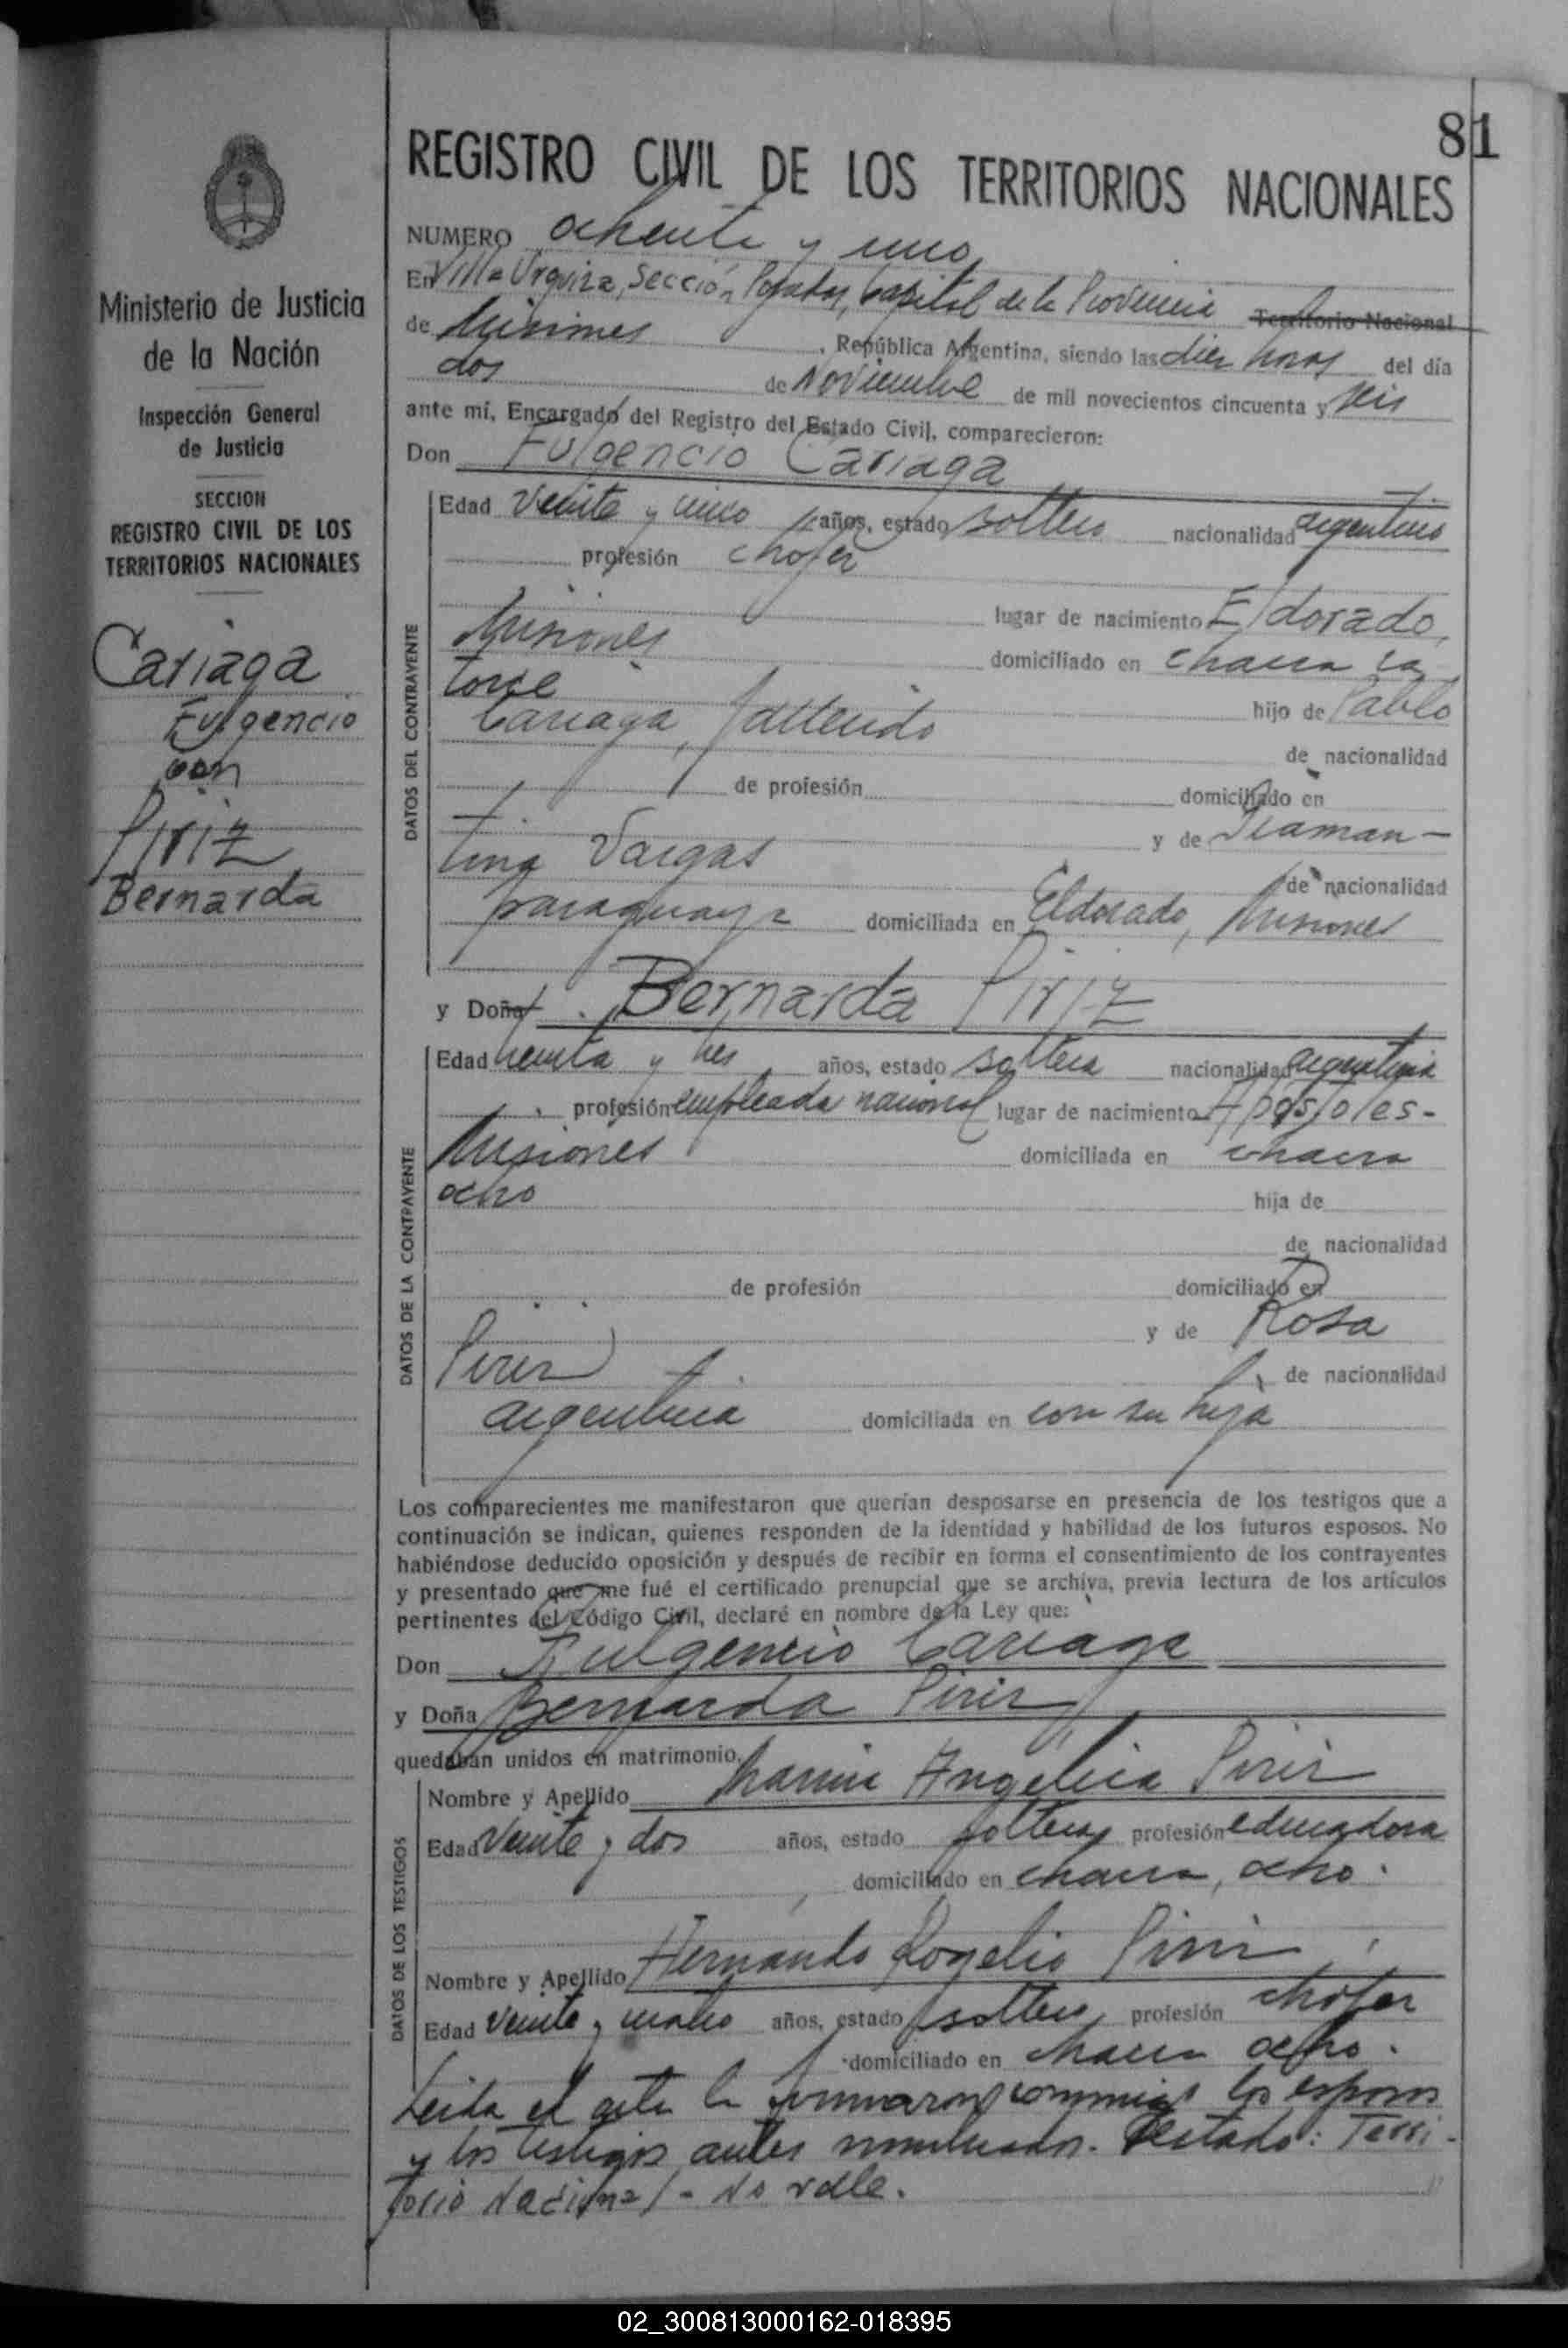 81
REGISTRO CIVIL DE LOS TERRITORIOS NACIONALES
Ministerio de Justicia
de la Nación
Inspección General
de Justicia
SECCION
REGISTRO CIVIL DE LOS
TERRITORIOS NACIONALES
Cariaga
Fulgencio
con
Piriz
Bernarda
NUMERO ochenta y uno
En Villa Urquiza, Sección Posadas, Capital de la Provincia Territorio Nacional
de Misiones, República Argentina, siendo las diez horas del día
dos de Noviembre de mil novecientos cincuenta y seis
ante mí, Encargado del Registro del Estado Civil, comparecieron:
Don Fulgencio Cariaga
DATOS DEL CONTRAYENTE
Edad veinte y cinco años, estado soltero nacionalidad argentino
profesión chofer
lugar de nacimiento Eldorado,
Misiones domiciliado en chacra ca
torce hijo de Pablo
Cariaga, fallecido
de nacionalidad
de profesión domiciliado en
y de Diaman-
tina Vargas de nacionalidad
paraguaya domiciliada en Eldorado, Misiones
y Doña Bernarda Piriz
DATOS DE LA CONTRAYENTE
Edad treinta y tres años, estado soltera nacionalidad argentina
profesión empleada nacional lugar de nacimiento Apostoles-
Misiones domiciliada en chacra
ocho hija de
de nacionalidad
de profesión domiciliado en
y de Rosa
Piriz de nacionalidad
argentina domiciliada en con su hija
Los comparecientes me manifestaron que querían desposarse en presencia de los testigos que a
continuación se indican, quienes responden de la identidad y habilidad de los futuros esposos. No
habiéndose deducido oposición y después de recibir en forma el consentimiento de los contrayentes
y presentado que me fué el certificado prenupcial que se archiva, previa lectura de los artículos
pertinentes del Código Civil, declaré en nombre de la Ley que:
Don Fulgencio Cariaga
y Doña Bernarda Piriz
quedaban unidos en matrimonio.
DATOS DE LOS TESTIGOS
Nombre y Apellido Angelica Piriz
Edad veinte y dos años, estado soltera profesión educadora
domiciliado en chacra, ocho.
Nombre y Apellido Hernando Rogelio Piriz
Edad veinte y cuatro años, estado soltero profesión chofer
domiciliado en chacra ocho.
Leida el acta la firmaron conmigo los esposos
y los testigos antes nombrados. Testado: Terri-
torio Nacional - No vale.
02_300813000162-018395